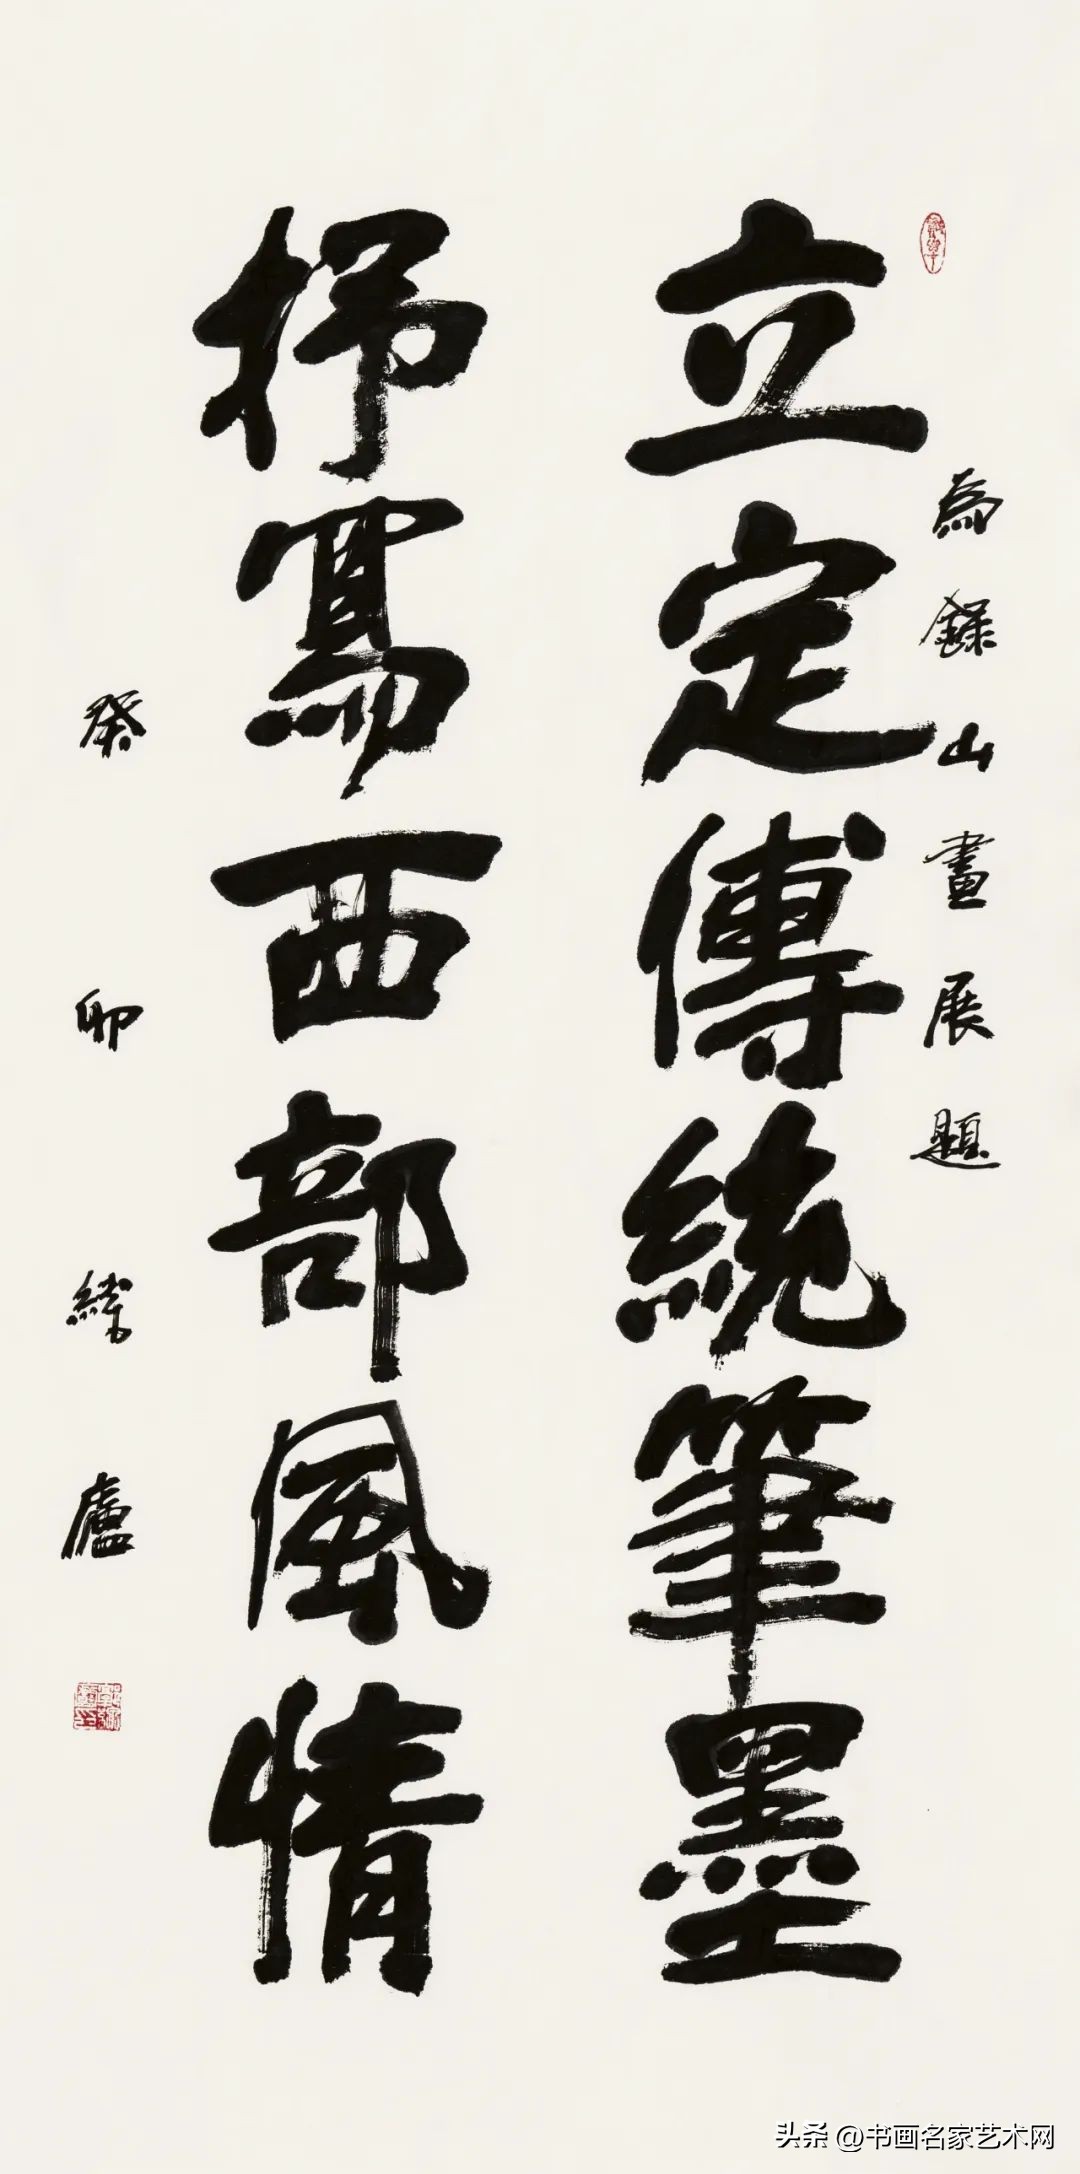 立定傳統筆墨
為錄山畫展題
抒寫西部風情
癸卯 緯廬
头条 @书画名家艺术网